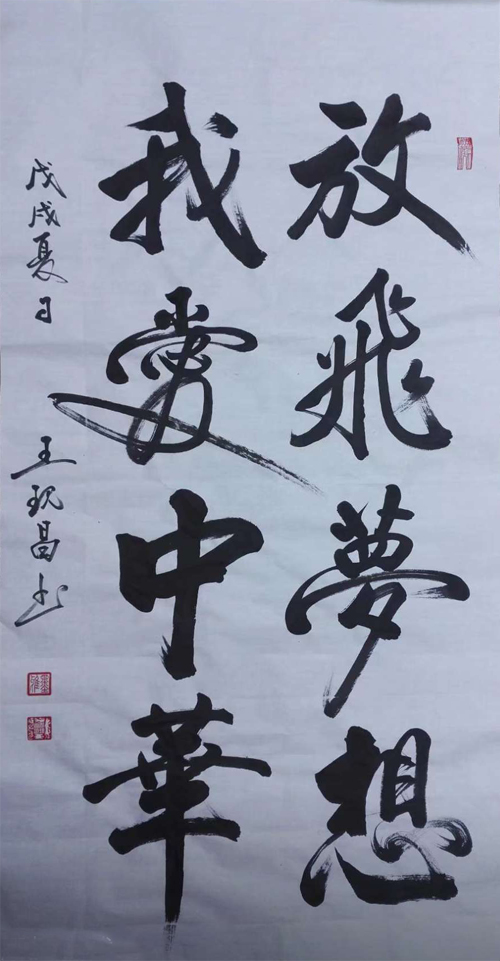 放飛夢想
我愛中華
戊戌夏日
王現昌书